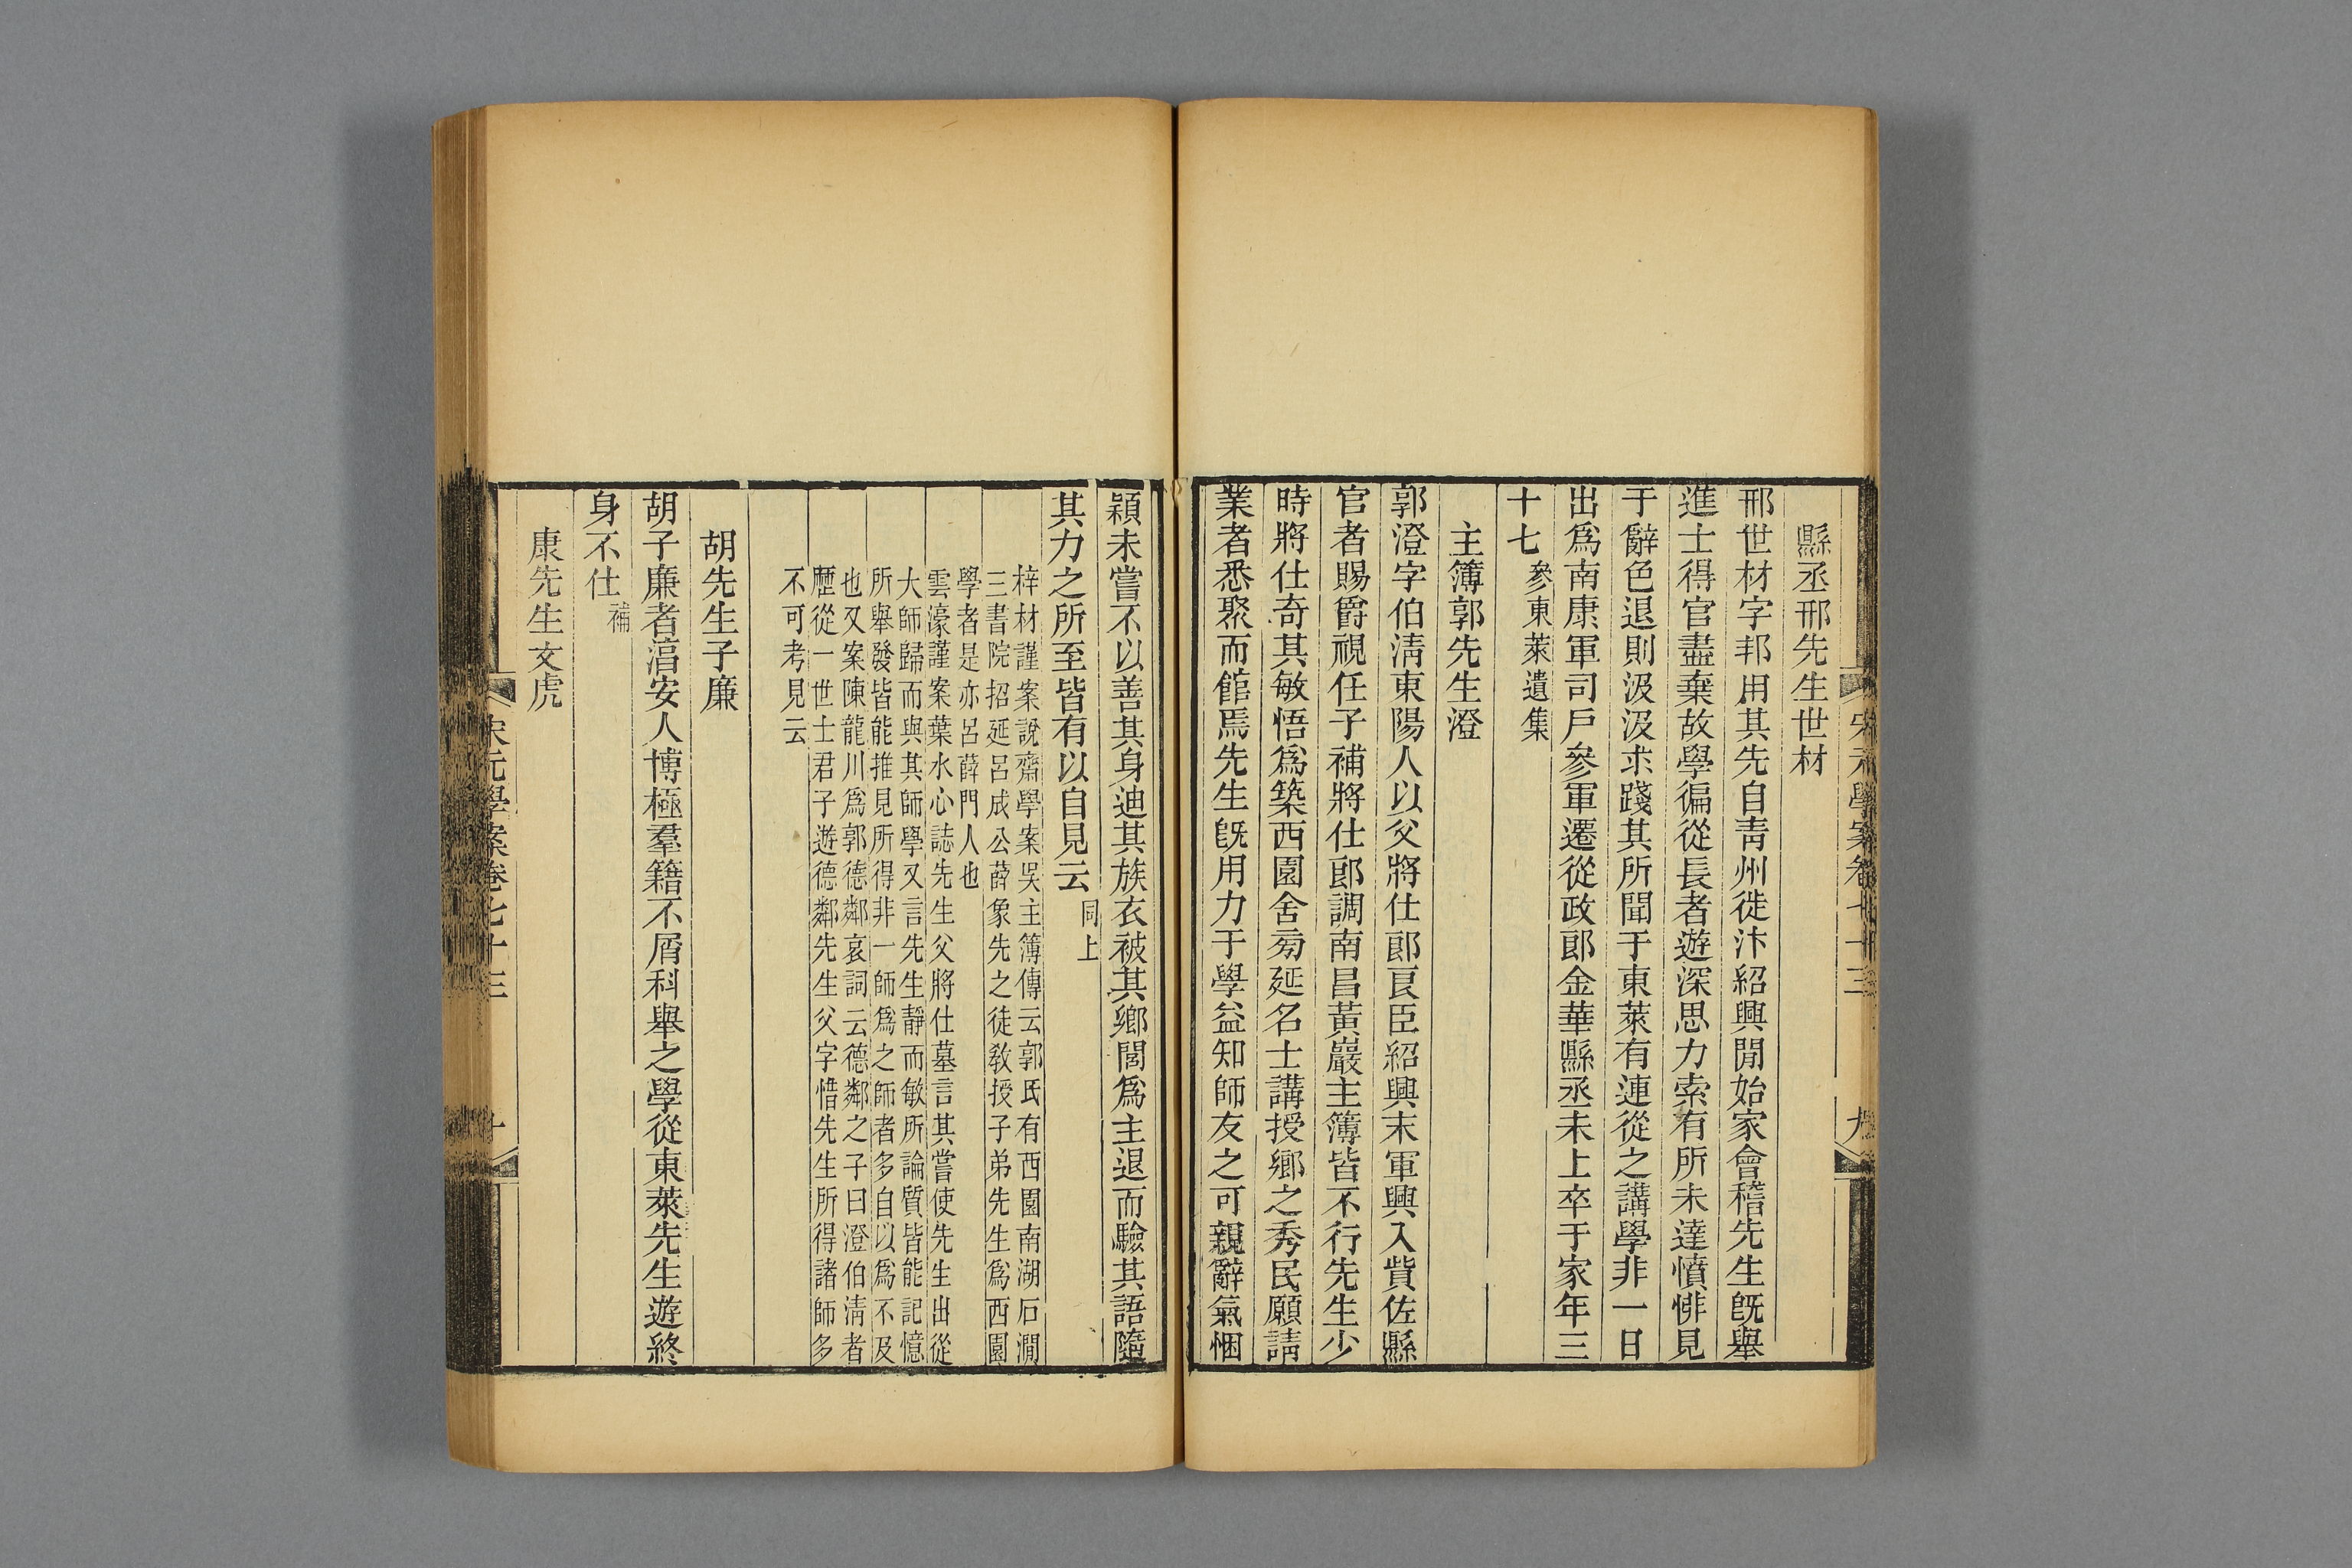 縣丞邢先生世材
邢世材字邦用其先自靑州徙汴紹興閒始家會稽先生旣舉
進士得官盡棄故學徧從長者遊深思力索有所未達憤悱見
于辭色退則汲汲求踐其所聞于東萊有連從之講學非一日
出爲南康軍司戶參軍遷從政郎金華縣丞未上卒于家年三
十七參東萊遺集
主簿郭先生澄
郭澄字伯淸東陽人以父將仕郎良臣紹興末軍興入貲佐縣
官者賜爵視任子補將仕郎調南昌黃巖主簿皆不行先生少
時將仕奇其敏悟爲築西園舍旁延名士講授鄕之秀民願請
業者悉聚而館焉先生旣用力于學益知師友之可親辭氣悃
宋元學案卷七十三
九
穎未嘗不以善其身迪其族衣被其鄕閭爲主退而驗其語隨
其力之所至皆有以自見云同上
梓材謹案說齋學案吳主簿傳云郭氏有西園南湖石澗
三書院招延呂成公薛象先之徒敎授子弟先生爲西園
學者是亦呂薛門人也
雲濠謹案葉水心誌先生父將仕墓言其嘗使先生出從
大師歸而與其師學又言先生靜而敏所論質皆能記憶
所舉發皆能推見所得非一師爲之師者多自以爲不及
也又案陳龍川爲郭德鄰哀詞云德鄰之子曰澄伯淸者
歷從一世士君子遊德鄰先生父字惜先生所得諸師多
不可考見云
胡先生子廉
胡子廉者湻安人博極羣籍不屑科舉之學從東萊先生遊終
身不仕補
康先生文虎
宋元學案卷七十三
十